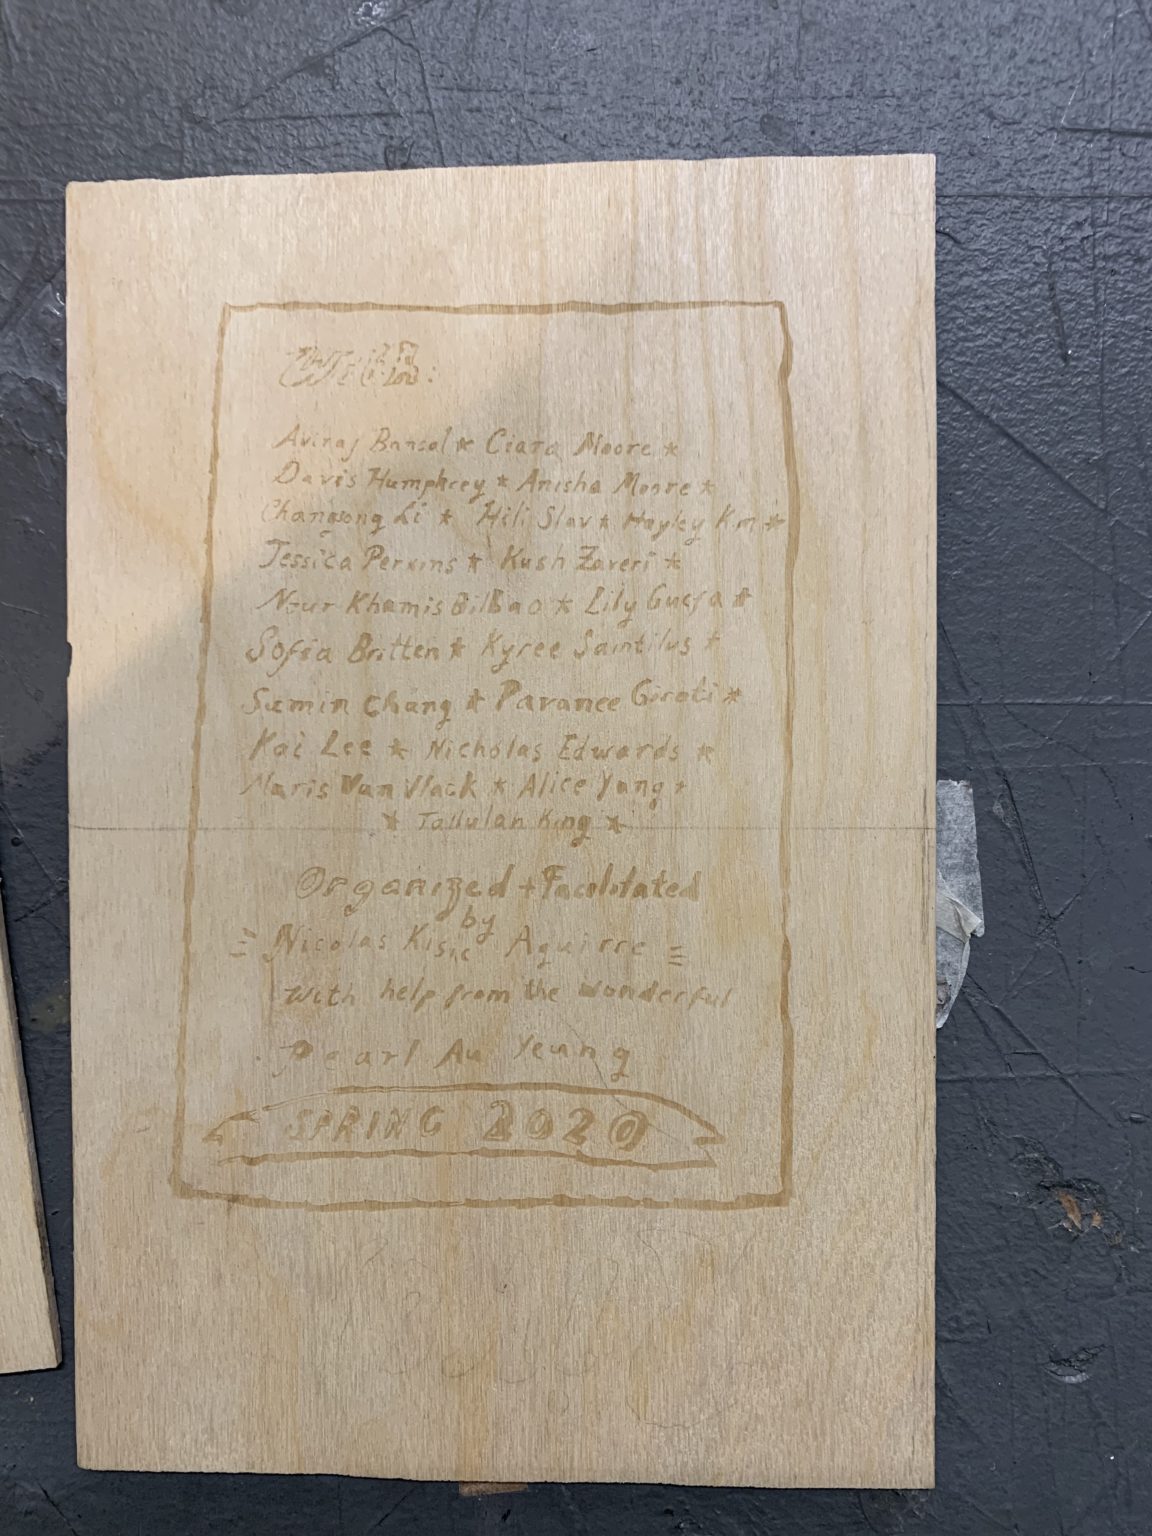 Aviraj Bansal * Ciara Moore *
Davis Humphrey * Anisha Moore *
Changsong Li * Hili Slav * Hayley Kim *
Jessica Perkins * Kush Zaveri *
Nour Khamis Bilbao * Lily Guefa *
Sofia Britten * Kyree Saintilus *
Sumin Chang * Pavanee Giroti *
Kai Lee * Nicholas Edwards *
Maris Van Vlack * Alice Yang *
* Tallulah King *
Organized + Facilitated
by
= Nicolas Kisic Aguirre =
With help from the wonderful
Pearl Au Yeung
SPRING 2020